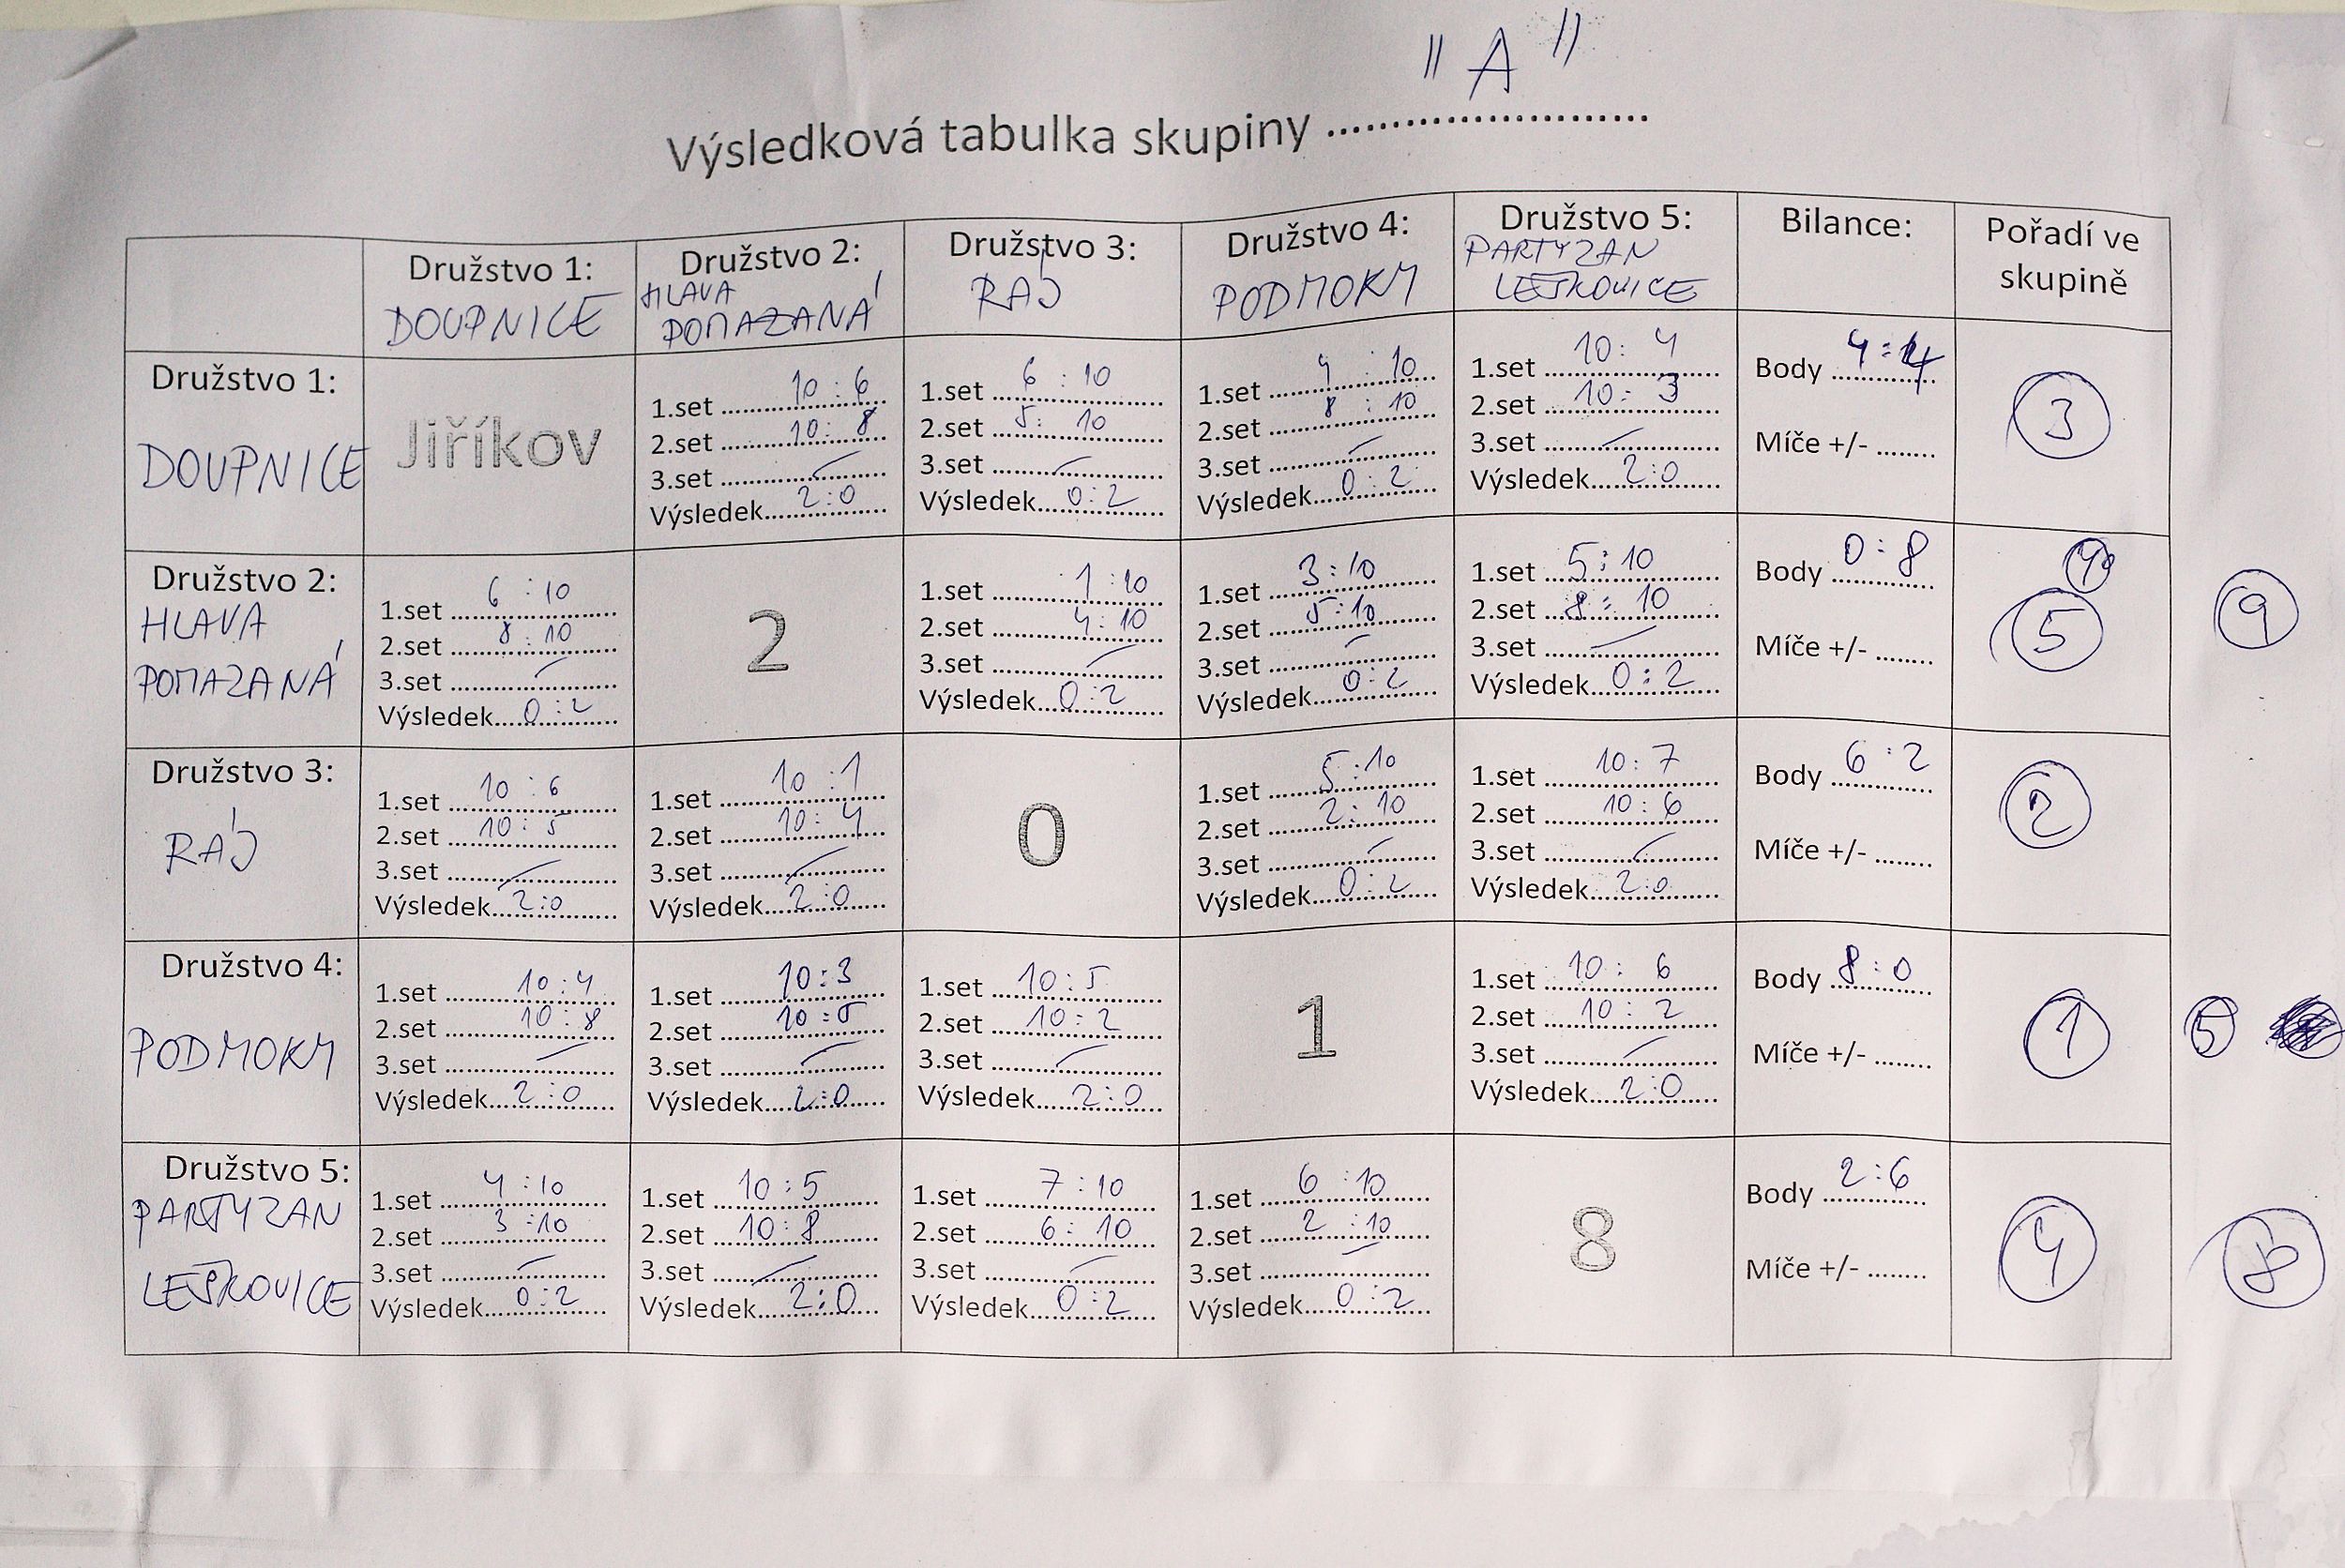 "A"
Výsledková tabulka skupiny ........................
Družstvo 1:
DOUPNICE
Družstvo 2:
HLAVA
POMAZANÁ
Družstvo 3:
RÁJ
Družstvo 4:
PODMOKY
Družstvo 5:
PARTYZAN
LEŠKOVICE
Bilance:
Pořadí ve
skupině
Družstvo 1:
DOUPNICE
Jiříkov
1.set 10:6
2.set 10:8
3.set —
Výsledek 2:0
1.set 6:10
2.set 5:10
3.set —
Výsledek 0:2
1.set 4:10
2.set 8:10
3.set —
Výsledek 0:2
1.set 10:4
2.set 10:3
3.set —
Výsledek 2:0
Body 4:4
Míče +/- ........
3
Družstvo 2:
HLAVA
POMAZANÁ
1.set 6:10
2.set 8:10
3.set —
Výsledek 0:2
2
1.set 1:10
2.set 4:10
3.set —
Výsledek 0:2
1.set 3:10
2.set 5:10
3.set —
Výsledek 0:2
1.set 5:10
2.set 8:10
3.set —
Výsledek 0:2
Body 0:8
Míče +/- ........
5
9
Družstvo 3:
RÁJ
1.set 10:6
2.set 10:5
3.set —
Výsledek 2:0
1.set 10:1
2.set 10:4
3.set —
Výsledek 2:0
0
1.set 5:10
2.set 2:10
3.set —
Výsledek 0:2
1.set 10:7
2.set 10:6
3.set —
Výsledek 2:0
Body 6:2
Míče +/- ........
2
Družstvo 4:
PODMOKY
1.set 10:4
2.set 10:8
3.set —
Výsledek 2:0
1.set 10:3
2.set 10:5
3.set —
Výsledek 2:0
1.set 10:5
2.set 10:2
3.set —
Výsledek 2:0
1
1.set 10:6
2.set 10:2
3.set —
Výsledek 2:0
Body 8:0
Míče +/- ........
1
5
Družstvo 5:
PARTYZAN
LEŠKOVICE
1.set 4:10
2.set 3:10
3.set —
Výsledek 0:2
1.set 10:5
2.set 10:8
3.set —
Výsledek 2:0
1.set 7:10
2.set 6:10
3.set —
Výsledek 0:2
1.set 6:10
2.set 2:10
3.set —
Výsledek 0:2
8
Body 2:6
Míče +/- ........
4
8